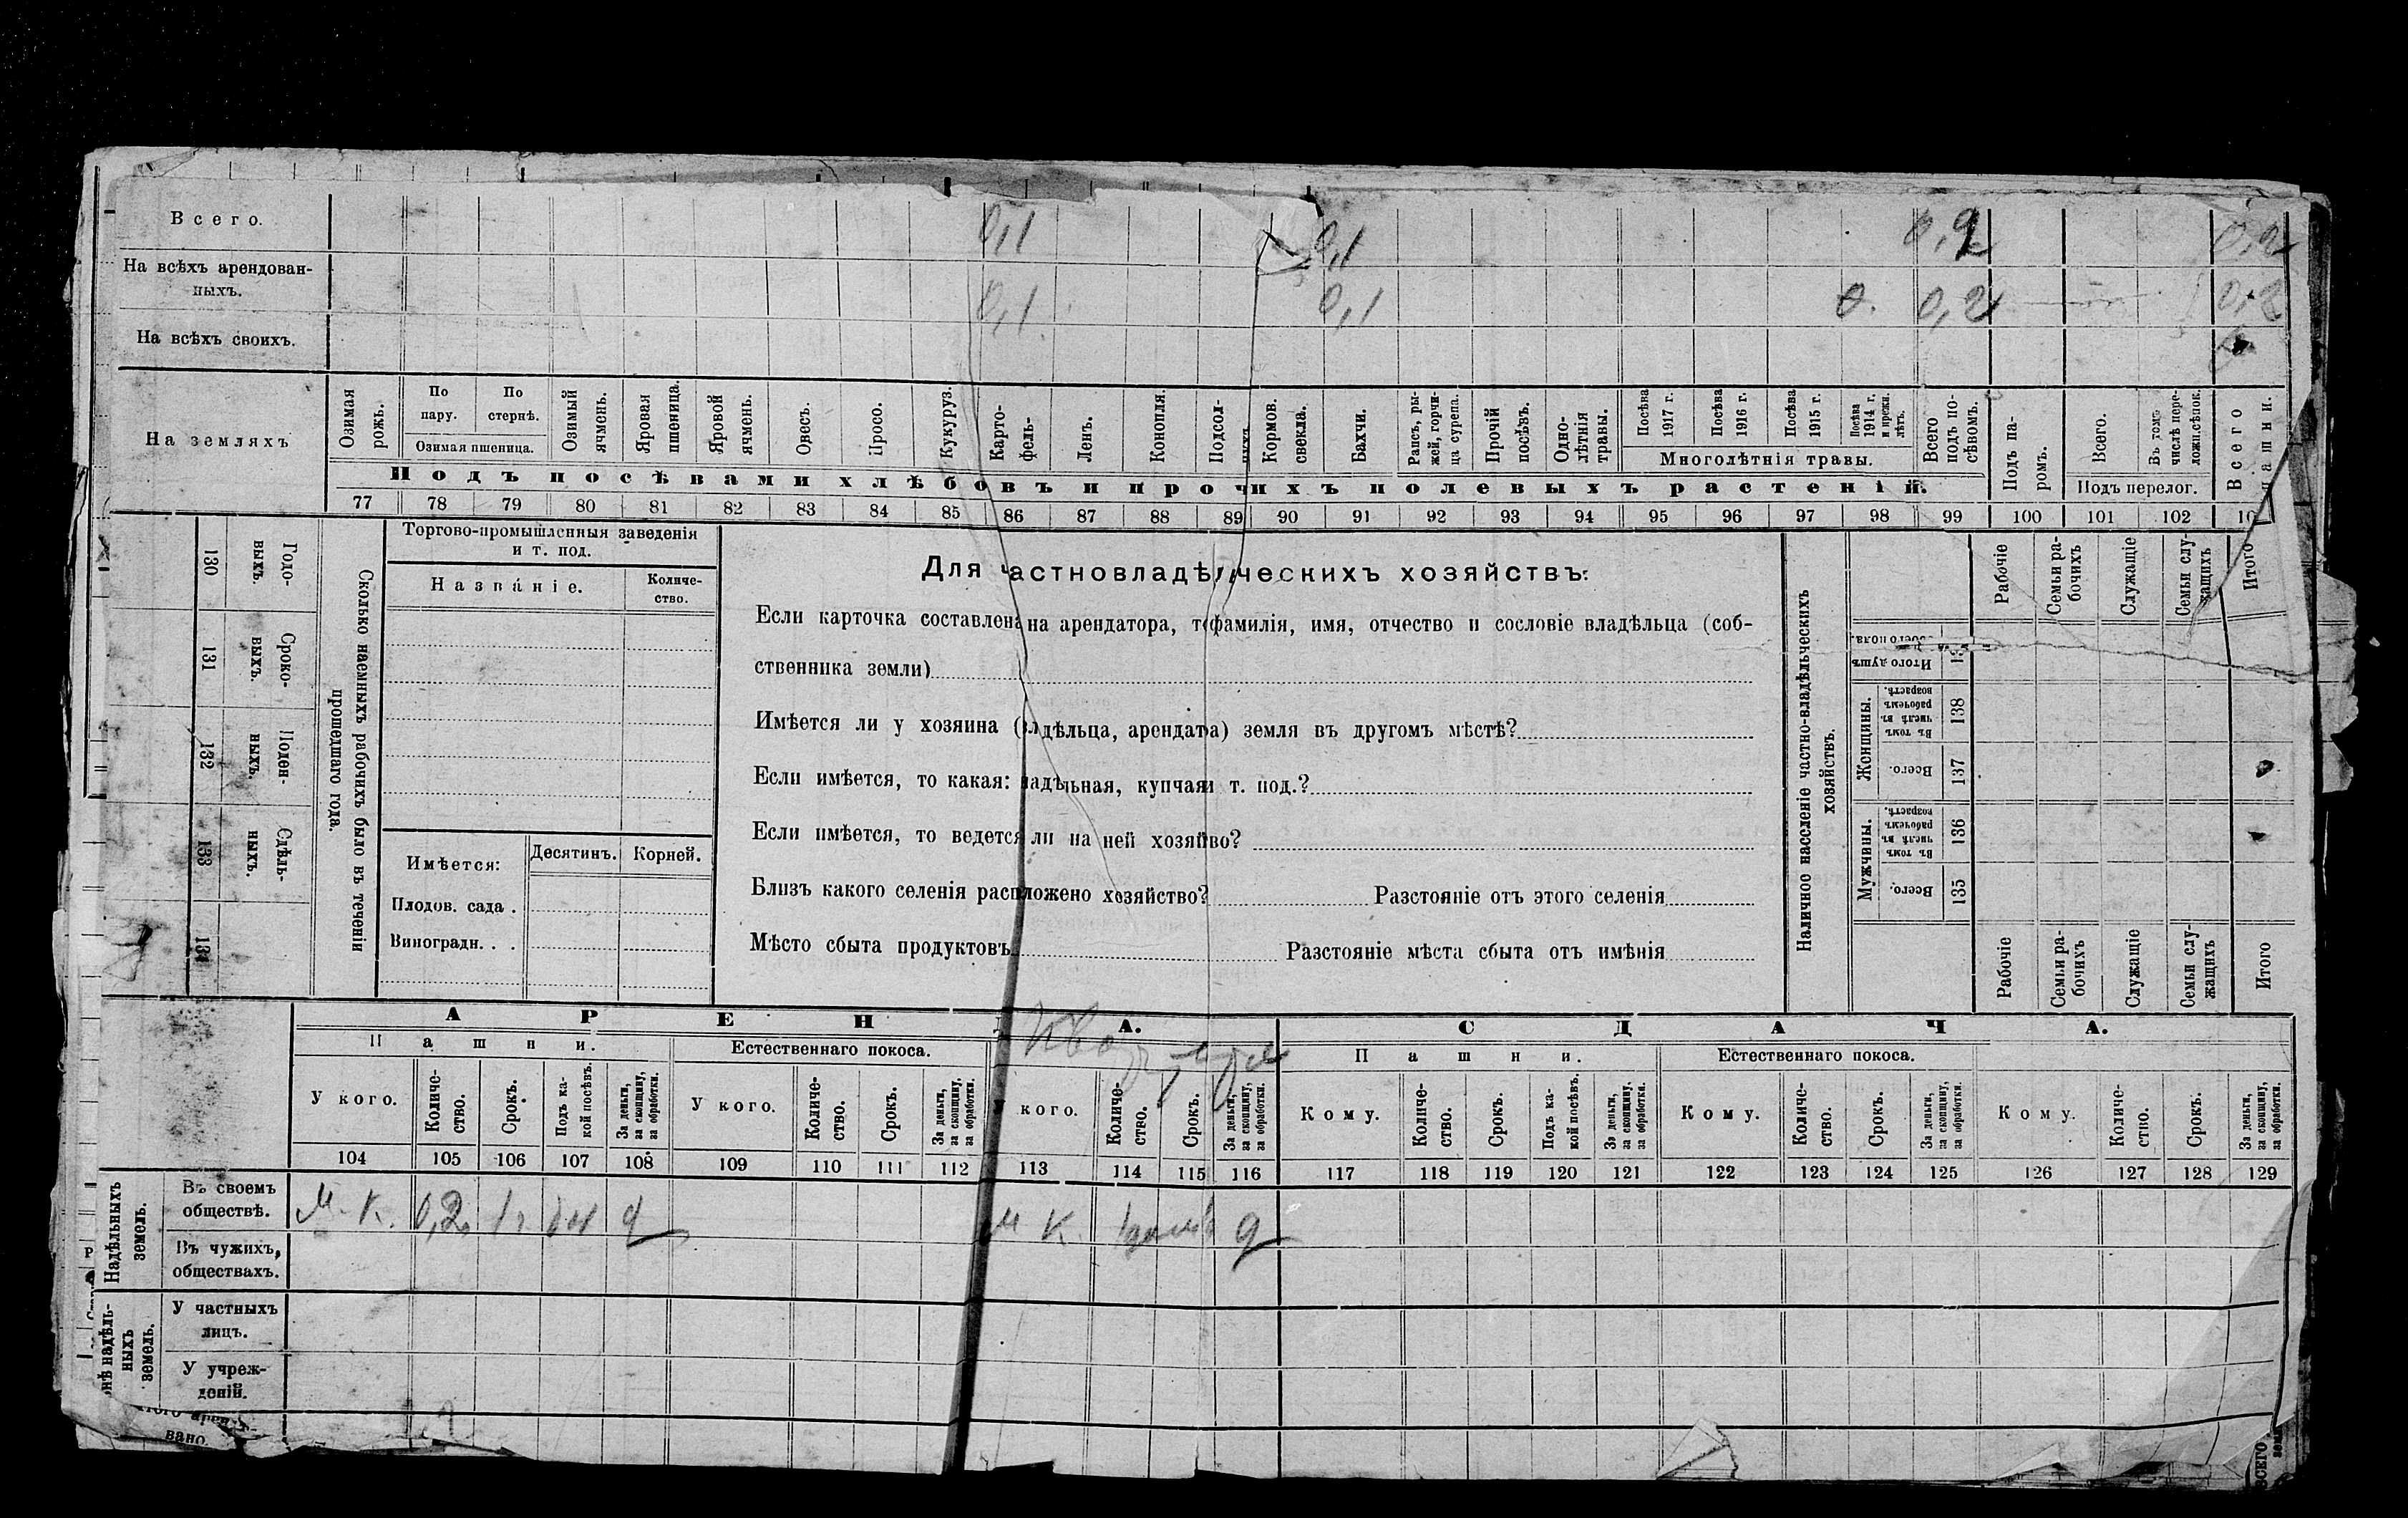 Всего. 0,1 0,1 0,2 0,2
На всѣхъ арендован-
ныхъ. 0,1 0,1 0. 0,2 0,2
На всѣхъ своихъ.
На земляхъ
Озимая рожь.
По пару.
По стернѣ.
Озимая пшеница.
Озимый ячмень.
Яровая пшеница.
Яровой ячмень.
Овесъ.
Просо.
Кукуруз.
Карто-
фель-
Ленъ.
Конопля.
Подсол-
Кормов. свекла.
Бахчи.
Рапсъ, ры-
жей, горчи-
ца сурепа.
Прочій посѣвъ.
Одно-
лѣтнія
травы.
Посѣва 1917 г.
Посѣва 1916 г.
Посѣва 1915 г.
Посѣва 1914 г. и прежн. лѣтъ.
Многолѣтнія травы.
Всего подъ по-
сѣвомъ.
Подъ па-
ромъ.
Всего.
Въ томъ числѣ пере-
ложн. сѣнок.
Подъ перелог.
Всего пашни.
Подъ посѣвами хлѣбовъ и прочихъ полевыхъ растеній.
77 78 79 80 81 82 83 84 85 86 87 88 89 90 91 92 93 94 95 96 97 98 99 100 101 102 10
130 Годо-
выхъ.
131 Сроко-
выхъ.
132 Поден-
ныхъ.
133 Сдѣль-
ныхъ.
134
Сколько наемныхъ рабочихъ было въ теченіи
прошедшаго года.
Торгово-промышленныя заведенія
и т. под.
Названіе.
Количе-
ство.
Имѣется: Десятинъ. Корней.
Плодов. сада .
Виноградн. . .
Для частновладѣльческихъ хозяйствъ:
Если карточка составлена на арендатора, то фамилія, имя, отчество и сословіе владѣльца (соб-
ственника земли)
Имѣется ли у хозяина (владѣльца, арендатора) земля въ другомъ мѣстѣ?
Если имѣется, то какая: надѣльная, купчая и т. под.?
Если имѣется, то ведется ли на ней хозяйство?
Близъ какого селенія расположено хозяйство? Разстояніе отъ этого селенія
Мѣсто сбыта продуктовъ Разстояніе мѣста сбыта отъ имѣнія
Наличное населеніе частно-владѣльческихъ
хозяйствъ.
Рабочіе
Семьи ра-
бочихъ
Служащіе
Семьи слу-
жащихъ
Итого
Итого душъ обоего пола.
Женщины.
Въ томъ числѣ въ рабочемъ возрастѣ. 138
Всего. 137
Мужчины.
Въ томъ числѣ въ рабочемъ возрастѣ. 136
Всего. 135
Рабочіе
Семьи ра-
бочихъ
Служащіе
Семьи слу-
жащихъ
Итого
АРЕНДА. СДАЧА.
Пашни. Естественнаго покоса. Пашни. Естественнаго покоса.
У кого.
Количе-
ство.
Срокъ.
Подъ ка-
кой посѣвъ.
За деньги,
за скопщину,
за обработки.
У кого.
Количе-
ство.
Срокъ.
За деньги,
за скопщину,
за обработки.
У кого.
Количе-
ство.
Срокъ.
За деньги,
за скопщину,
за обработки.
Кому.
Количе-
ство.
Срокъ.
Подъ ка-
кой посѣвъ.
За деньги,
за скопщину,
за обработки.
Кому.
Количе-
ство.
Срокъ.
За деньги,
за скопщину,
за обработки.
Кому.
Количе-
ство.
Срокъ.
За деньги,
за скопщину,
за обработки.
104 105 106 107 108 109 110 111 112 113 114 115 116 117 118 119 120 121 122 123 124 125 126 127 128 129
Надѣльныхъ
земель.
Въ своемъ
обществѣ. М. К. 0,2 1г д М К д
Въ чужихъ
обществахъ.
надѣль-
ныхъ
земель.
У частныхъ
лицъ.
У учреж-
деній.
вано.
ВСЕГО